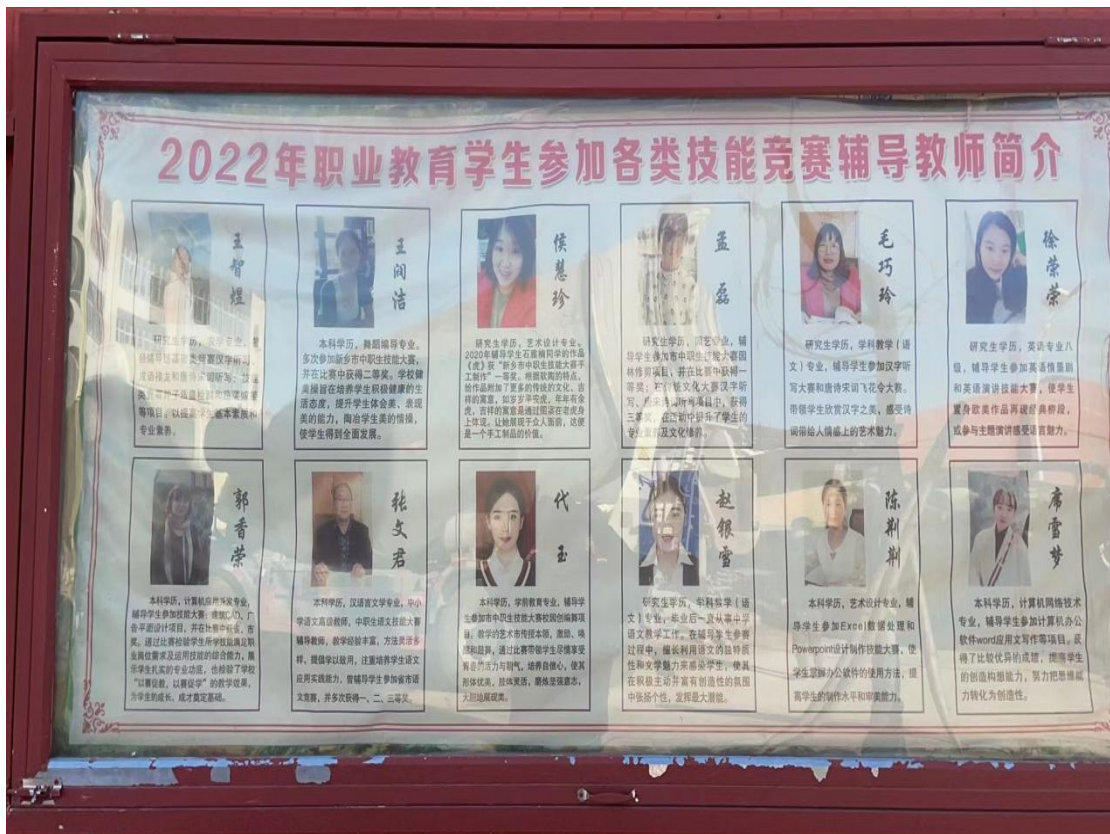 2022年职业教育学生参加各类技能竞赛辅导教师简介
王智煜
研究生学历，
专业素养。
王润洁
本科学历，舞蹈编导专业。
多次参加新乡市中职生技能大赛，
并在比赛中获得二等奖。学校健
美操旨在培养学生积极健康的生
活态度，提升学生体会美、表现
美的能力，陶冶学生美的情操，
使学生得到全面发展。
侯慧珍
研究生学历，艺术设计专业。
2020年辅导学生石雅楠同学的作品
《虎》获“新乡市中职生技能大赛手
工制作”一等奖。根据软陶的特点，
给作品附加了更多的传统的文化、吉
祥的寓意，如岁岁平安虎，年年有余
虎，吉祥的寓意是通过图案在老虎身
上体现。让她展现于众人面前，这便
是一个手工制品的价值。
孟磊
研究生学历，园艺专业，辅
导学生参加市中职生技能大赛园
林修剪项目，并在比赛中获得一
等奖；
写、
三等奖，在活动中提升了学生的
专业素养及文化修养。
毛巧玲
研究生学历，学科教学（语
文）专业，辅导学生参加汉字听
写大赛和唐诗宋词飞花令大赛。
带领学生欣赏汉字之美，感受诗
词带给人情感上的艺术魅力。
徐荣荣
研究生学历，英语专业八
级，辅导学生参加英语情景剧
和英语演讲技能大赛，使学生
置身欧美作品再现经典桥段，
或参与主题演讲感受语言魅力。
郭香荣
本科学历，计算机应用开发专业，
辅导学生参加技能大赛：建筑CAD、广
告平面设计项目，并在比赛中获省、市
奖。通过比赛检验学生所学技能满足职
业岗位需求及运用技能的综合能力，展
示学生扎实的专业功底，也检验了学校
“以赛促教、以赛促学”的教学效果，
为学生的成长、成才奠定基础。
张文君
本科学历，汉语言文学专业，中小
学语文高级教师，中职生语文技能大赛
辅导教师，教学经验丰富，方法灵活多
样，提倡学以致用，注重培养学生语文
应用实践能力，曾辅导学生参加省市语
文竞赛，并多次获得一、二、三等奖。
代玉
本科学历，学前教育专业，辅导学
生参加市中职生技能大赛校园创编舞项
目。教学的艺术不在传授本领，激励、唤
醒和鼓舞，通过比赛带领学生尽情享受
青春的活力与朝气，培养自信心，使其
形体优美，肢体灵活，磨炼坚强意志，
大胆地展现美。
赵银雪
研究生学历，学科教学（语
文）专业，毕业后一直从事中学
语文教学工作。在辅导学生参赛
过程中，擅长利用语文的独特质
性和文学魅力来感染学生，使其
在积极主动并富有创造性的氛围
中张扬个性，发挥最大潜能。
陈荆荆
本科学历，艺术设计专业，辅
导学生参加Excel数据处理和
Powerpoint设计制作技能大赛，使
学生掌握办公软件的使用方法，提
高学生的制作水平和审美能力。
席雪梦
本科学历，计算机网络技术
专业，辅导学生参加计算机办公
软件word应用文写作等项目。获
得了比较优异的成绩，提高学生
的创造构想能力，努力把思维能
力转化为创造性。